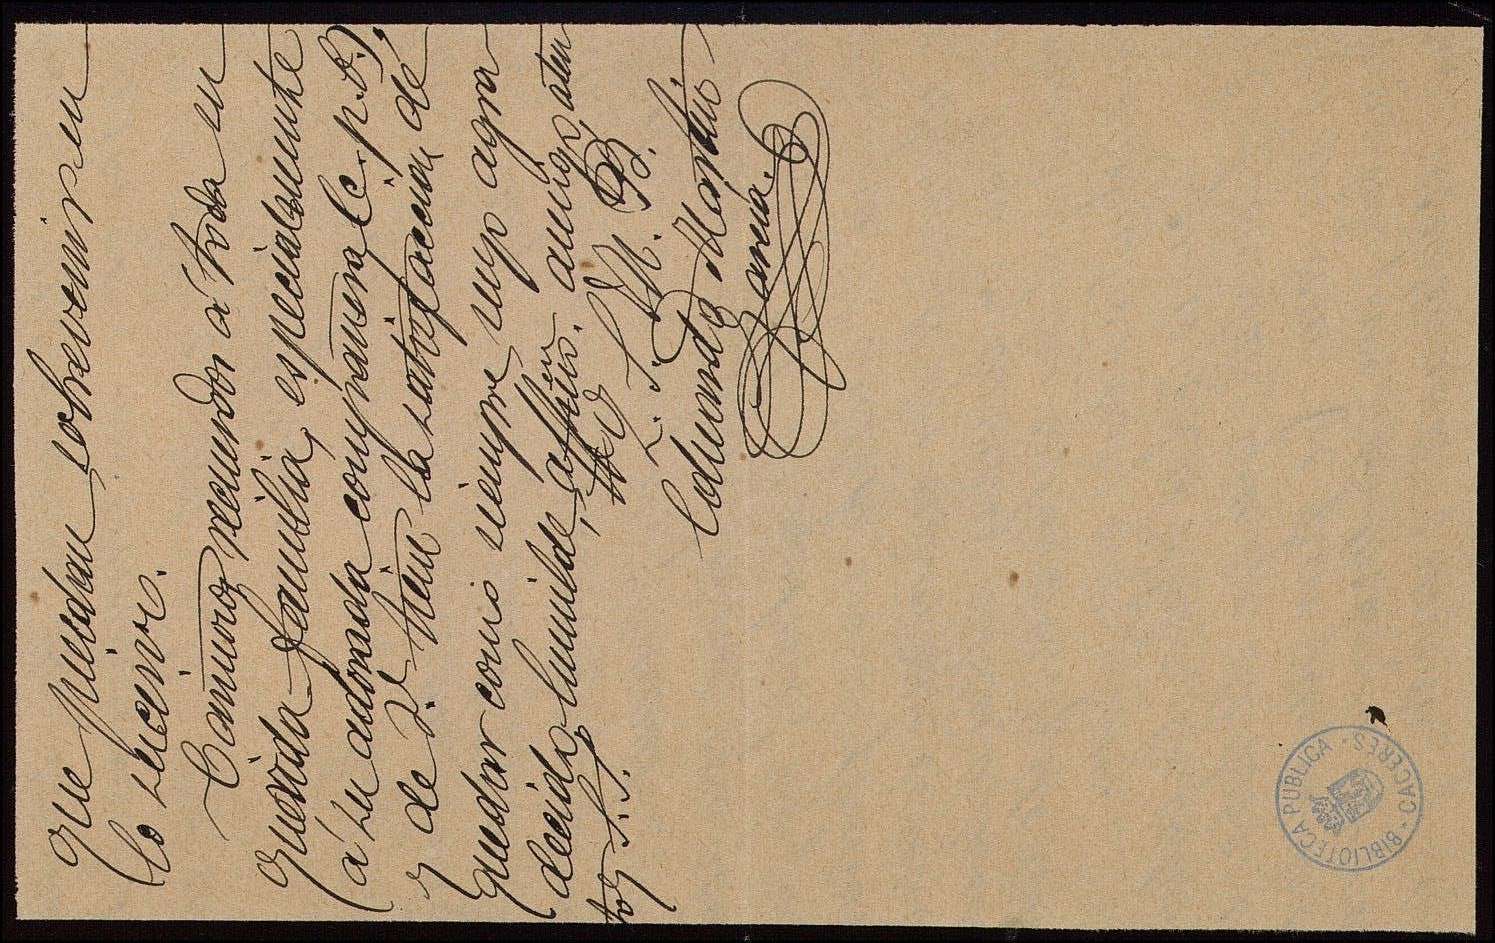 que puedan sobrevenir en
lo sucesivo.
Cariñoso recuerdos á toda su
querida familia, especialmente
á su adorada compañera (c. p. b.),
y de V. tiene la satisfacción de
quedar como siempre muy agra
decido, humilde, affmo. amigo aten
to y S. S.
q. S. M. B.
Edmundo Martin
Garcia.
BIBLIOTECA PUBLICA · CACERES ·